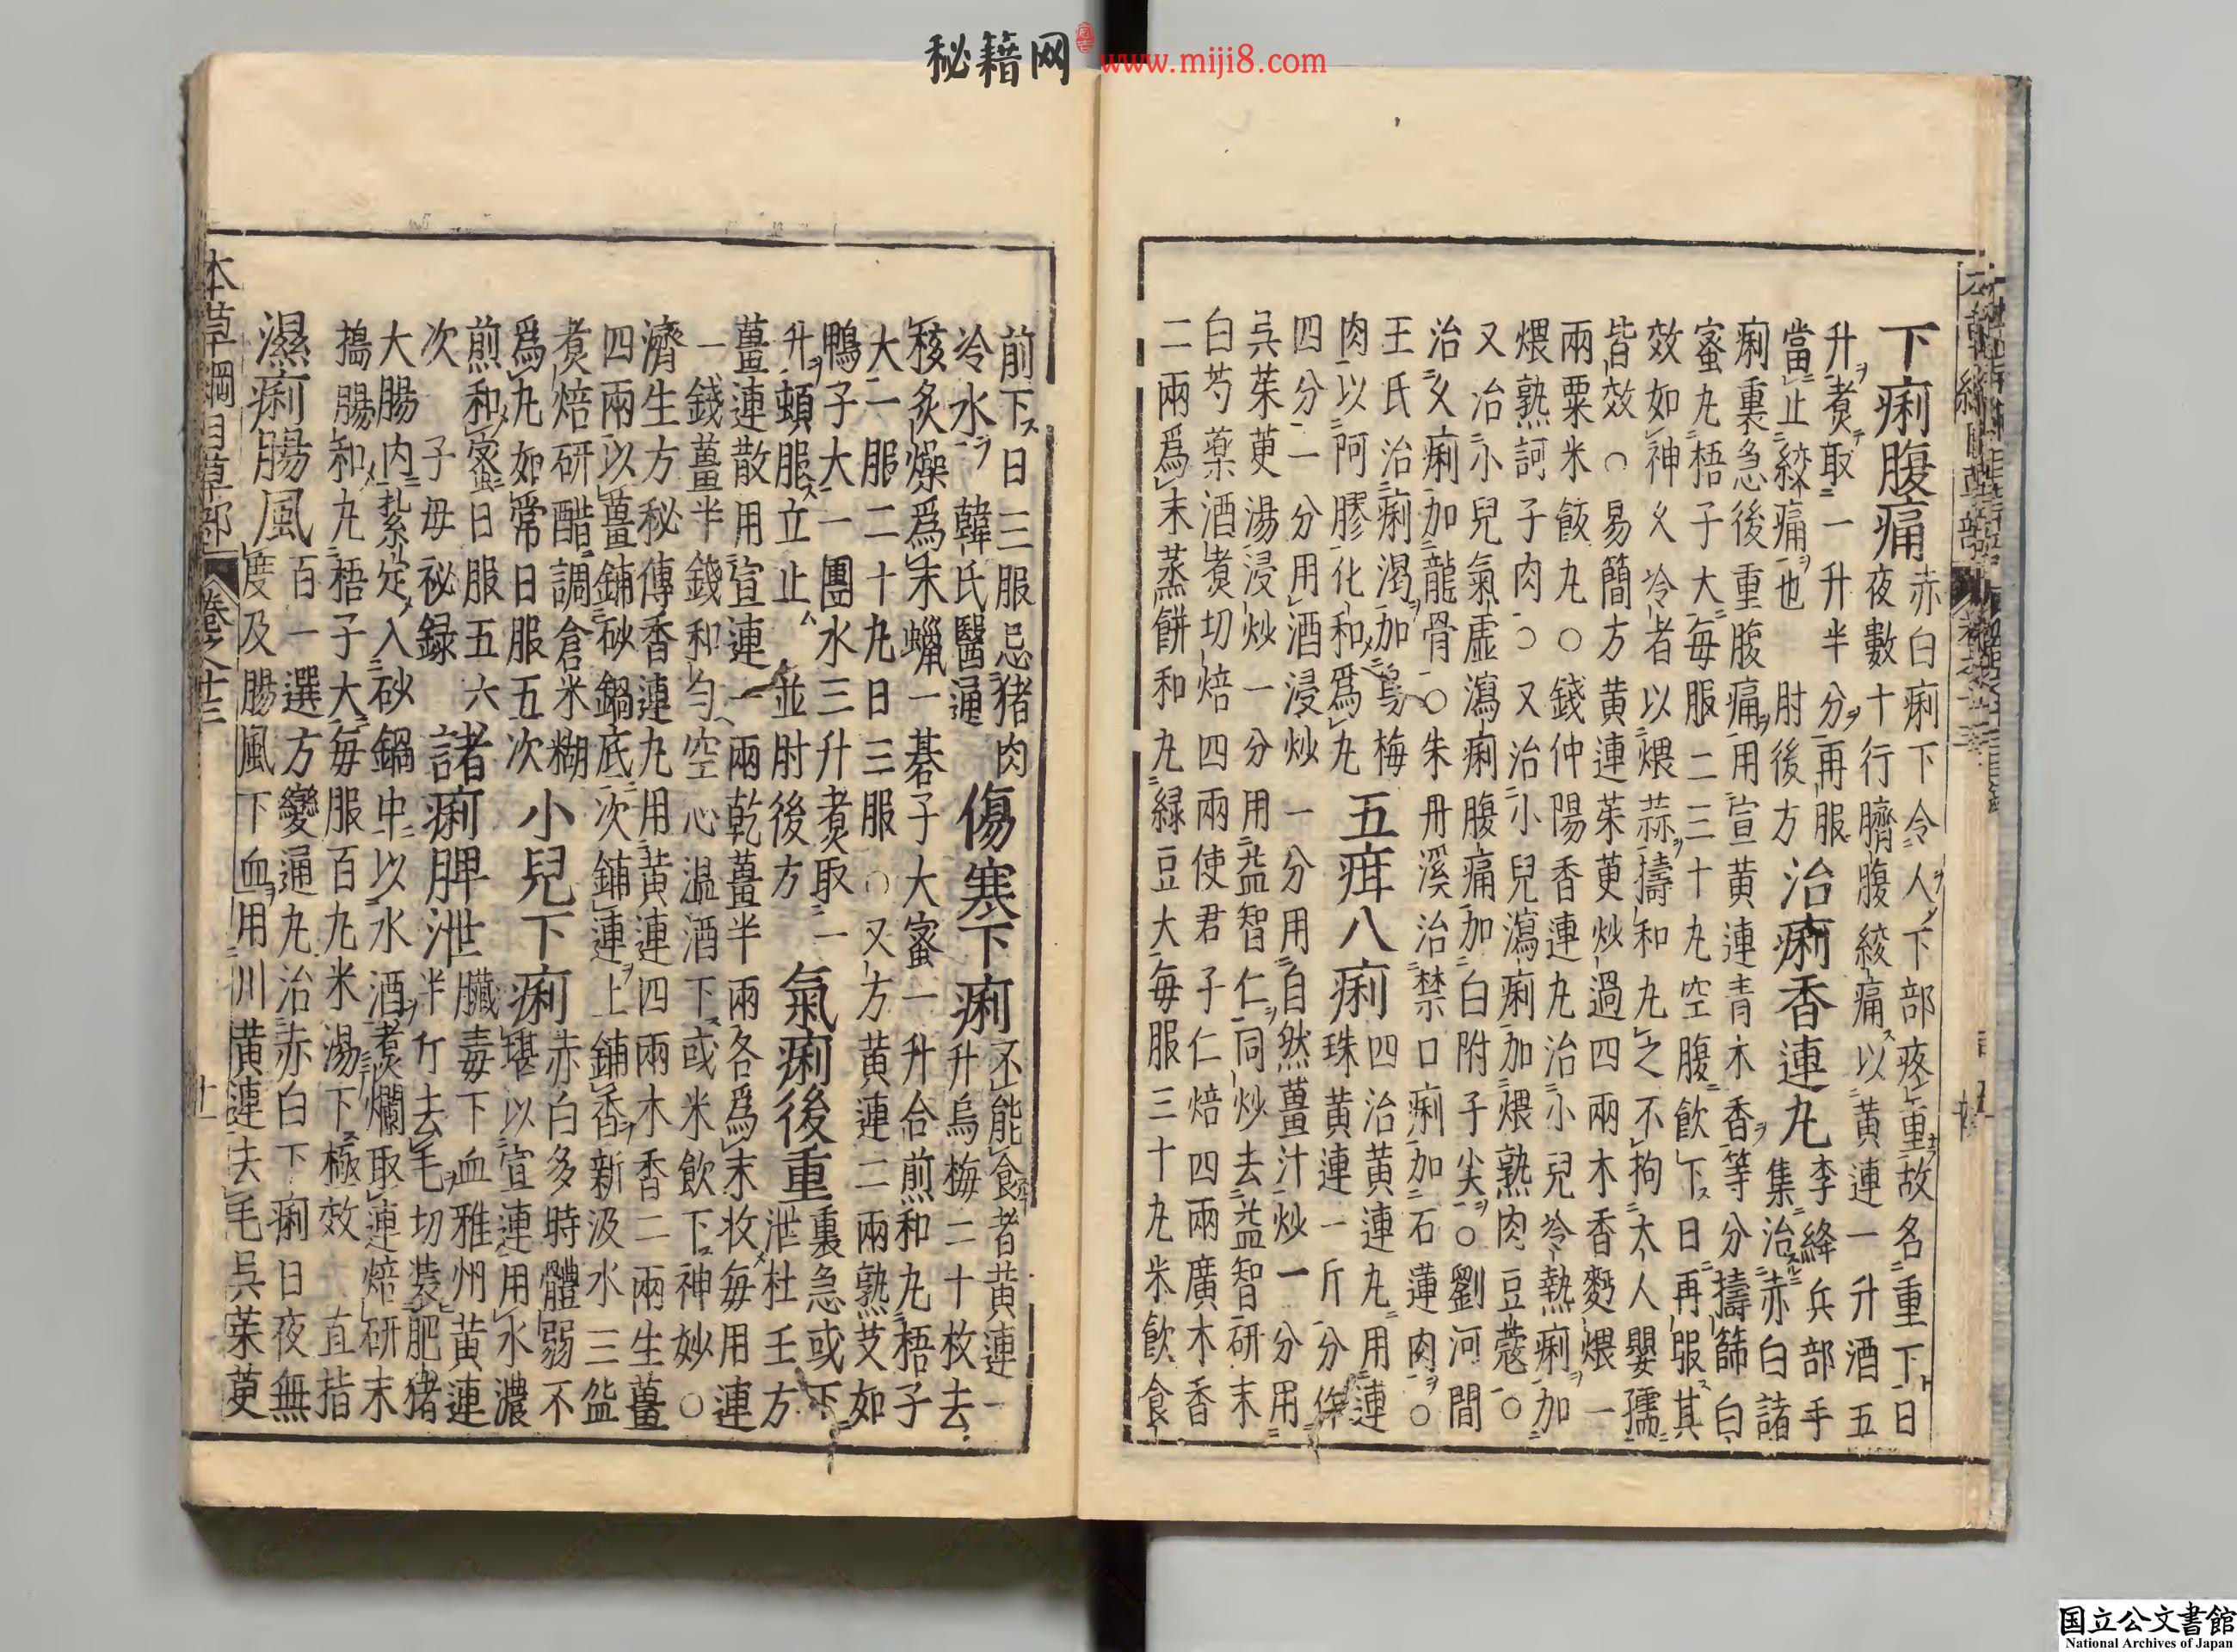 秘籍网 www.miji8.com
下痢腹痛
赤白痢下令人下部疼重故名重下日
夜數十行臍腹絞痛以黃連一升酒五
升煮取一升半分再服
當止絞痛也 肘後方
治痢香連丸
李絳兵部手
集治赤白諸
痢裏急後重腹痛用宣黃連青木香等分擣篩白
蜜丸梧子大每服二三十丸空腹飲下日再服其
效如神久冷者以煨蒜擣和丸之不拘大人嬰孺
皆效○易簡方黃連茱萸炒過四兩木香麪煨一
兩粟米飯丸○錢仲陽香連丸治小兒冷熱痢加
煨熟訶子肉○又治小兒瀉痢加煨熟肉豆蔻○
又治小兒氣虛瀉痢腹痛加白附子尖○劉河間
治久痢加龍骨○朱丹溪治禁口痢加石蓮肉○
王氏治痢渴加烏梅
肉以阿膠化和爲丸
五疳八痢
四治黃連丸用連
珠黃連一斤分作
四分一分用酒浸炒一分用自然薑汁炒一分用
吳茱萸湯浸炒一分用益智仁同炒去益智研末
白芍藥酒煮切焙四兩使君子仁焙四兩廣木香
二兩爲末蒸餅和丸綠豆大每服三十丸米飲食
前下日三服忌猪肉
冷水 韓氏醫通
傷寒下痢
不能食者黃連一
升烏梅二十枚去
核炙燥爲末蠟一棊子大蜜一升合煎和丸梧子
大一服二十丸日三服○又方黃連二兩熟艾如
鴨子大一團水三升煮取一
升頓服立止 並肘後方
氣痢後重
裏急或下
泄杜壬方
薑連散用宣連一兩乾薑半兩各爲末收每用連
一錢薑半錢和勻空心溫酒下或米飲下神妙○
濟生方秘傳香連丸用黃連四兩木香二兩生薑
四兩以薑鋪砂鍋底次鋪連上鋪香新汲水三盌
煮焙研醋調倉米糊
爲丸如常日服五次
小兒下痢
赤白多時體弱不
堪以宣連用水濃
煎和蜜日服五六
次 子母祕録
諸痢脾泄
臟毒下血雅州黃連
半斤去毛切裝肥猪
大腸内紥定入砂鍋中以水酒煮爛取連焙研末
搗腸和丸梧子大每服百丸米湯下極效 直指
濕痢腸風
百一選方變通丸治赤白下痢日夜無
度及腸風下血用川黃連去毛吳茱萸
本草綱目草部 卷之十三
国立公文書館
National Archives of Japan